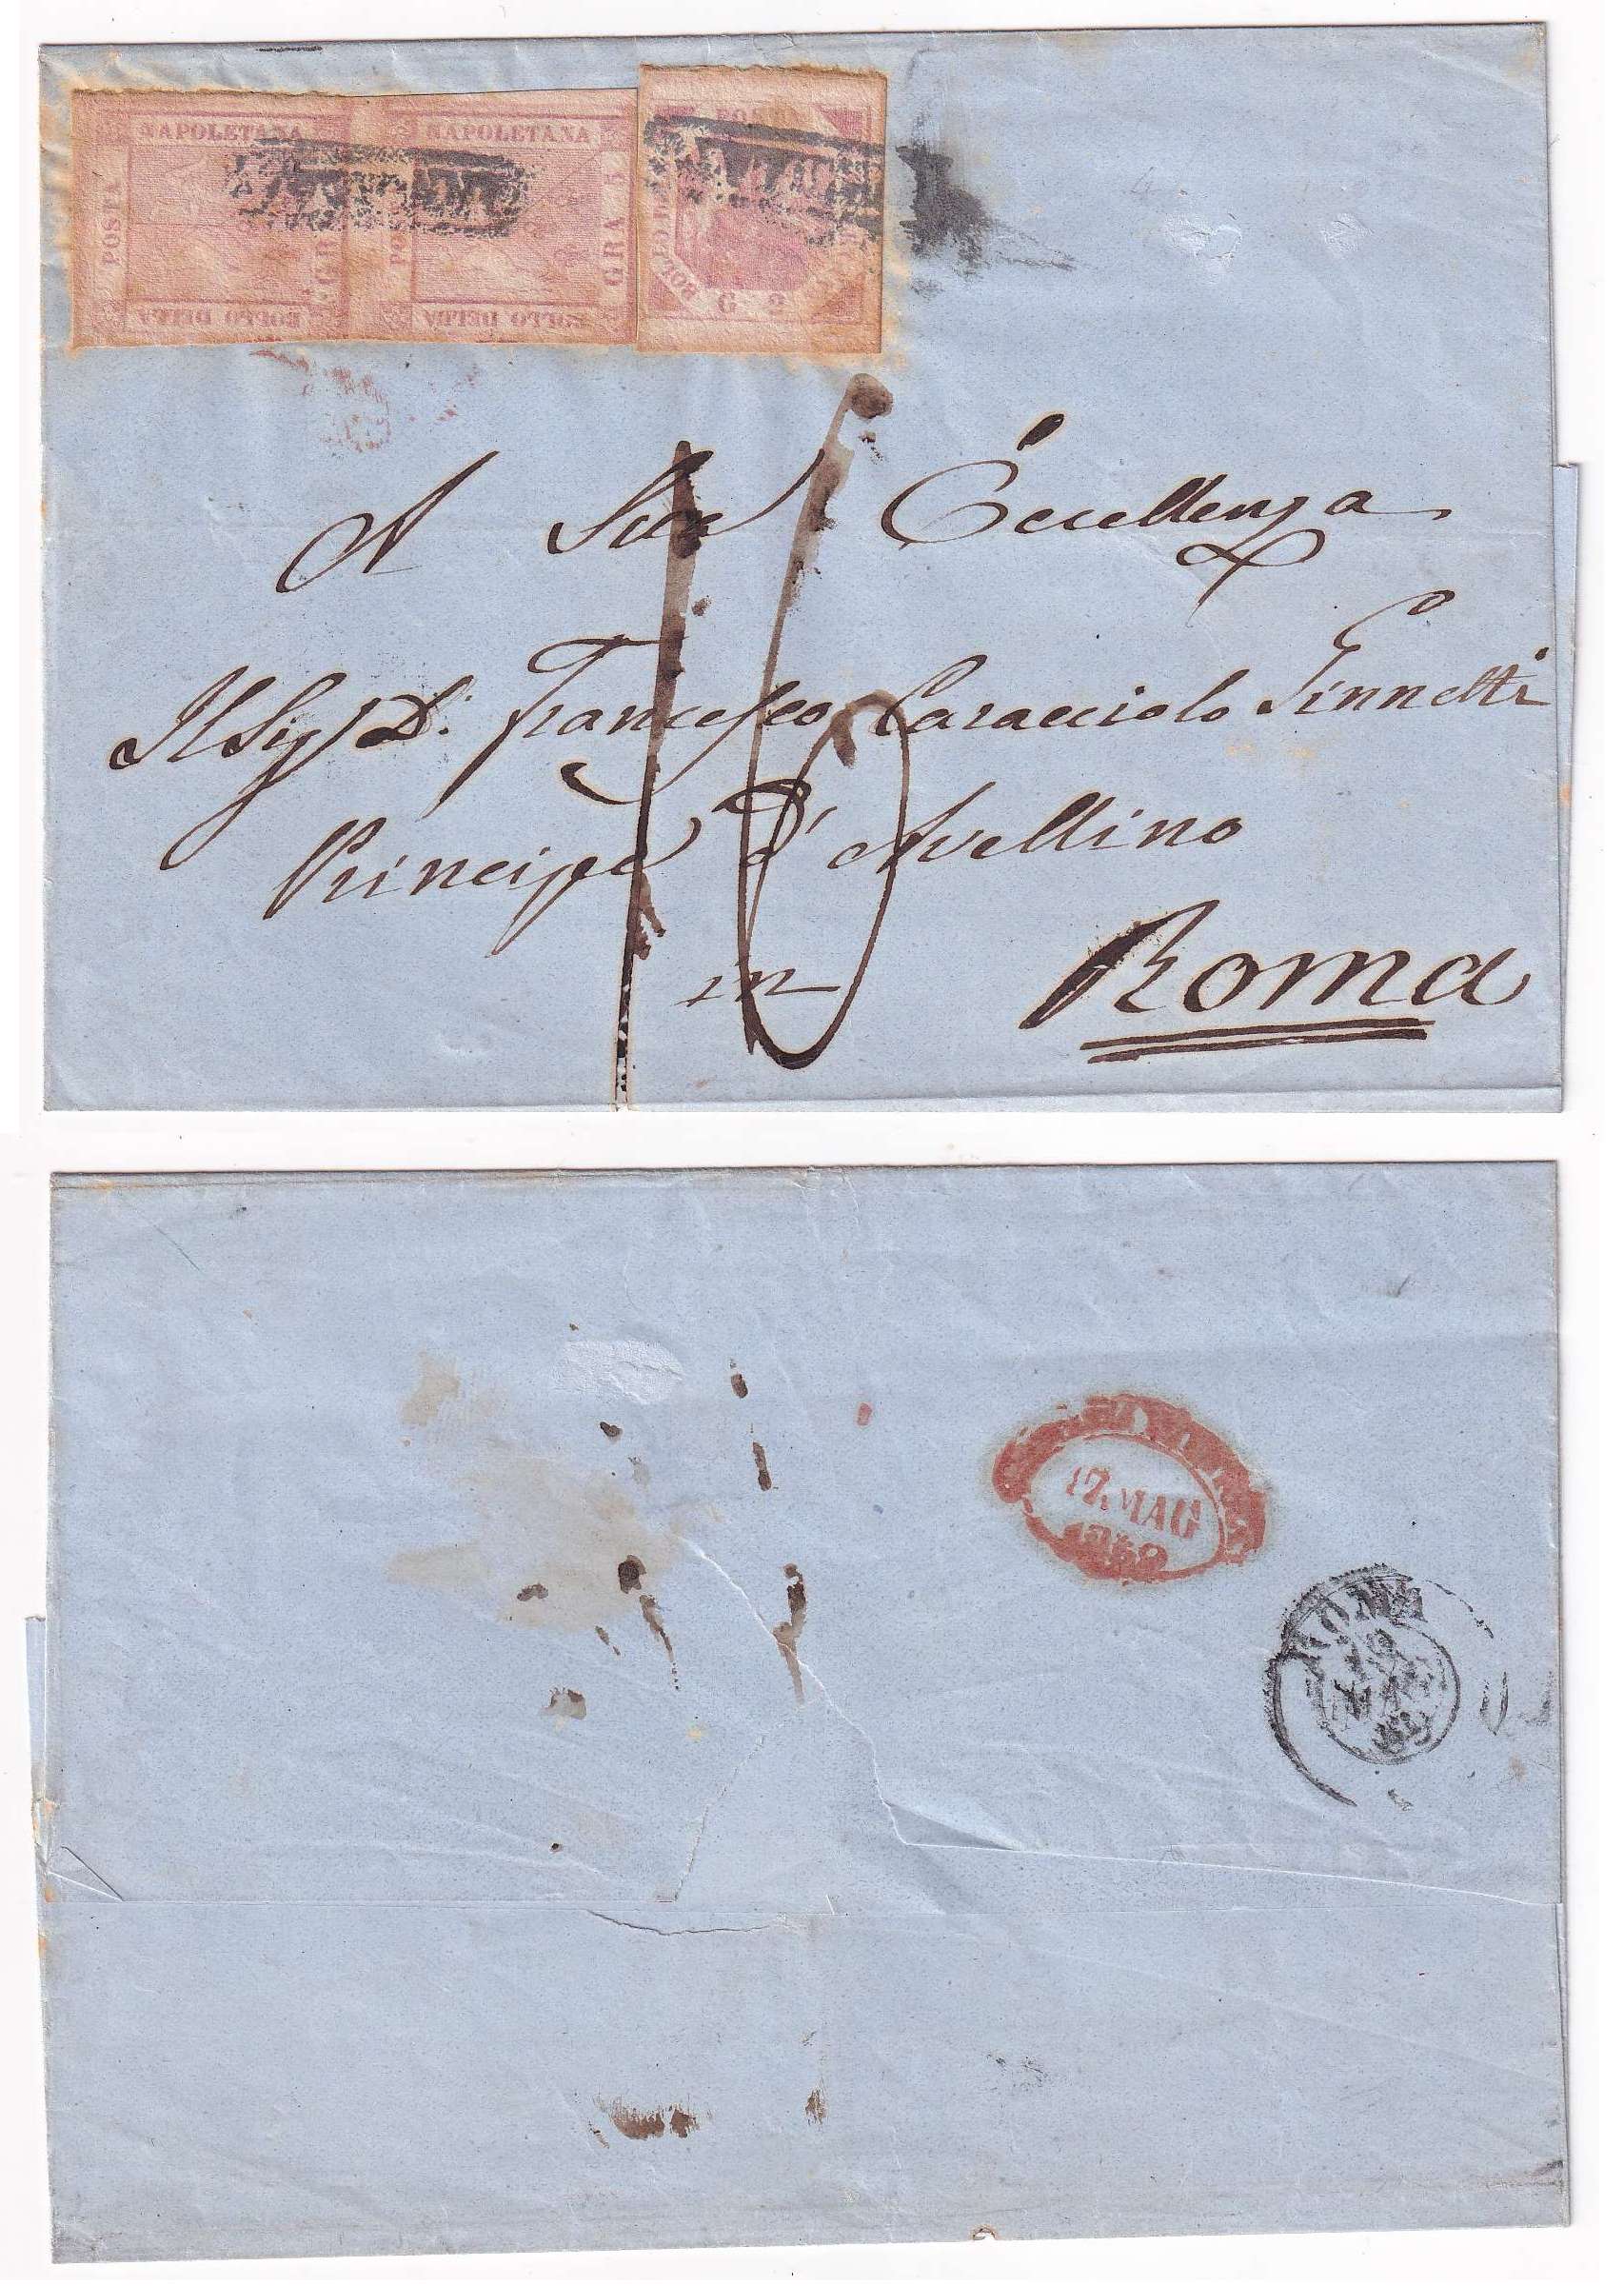 NAPOLETANA
POSTA
GRA
BOLLO DELLA
NAPOLETANA
PO
GRA 5
BOLLO DELLA
BOLLO
G. 2
A Sua Eccellenza
Il Sig.r D. Francesco Caracciolo Ginnetti
Principe d'Avellino
in Roma
16
17. MAG
1858
ROMA
19
MAG
58